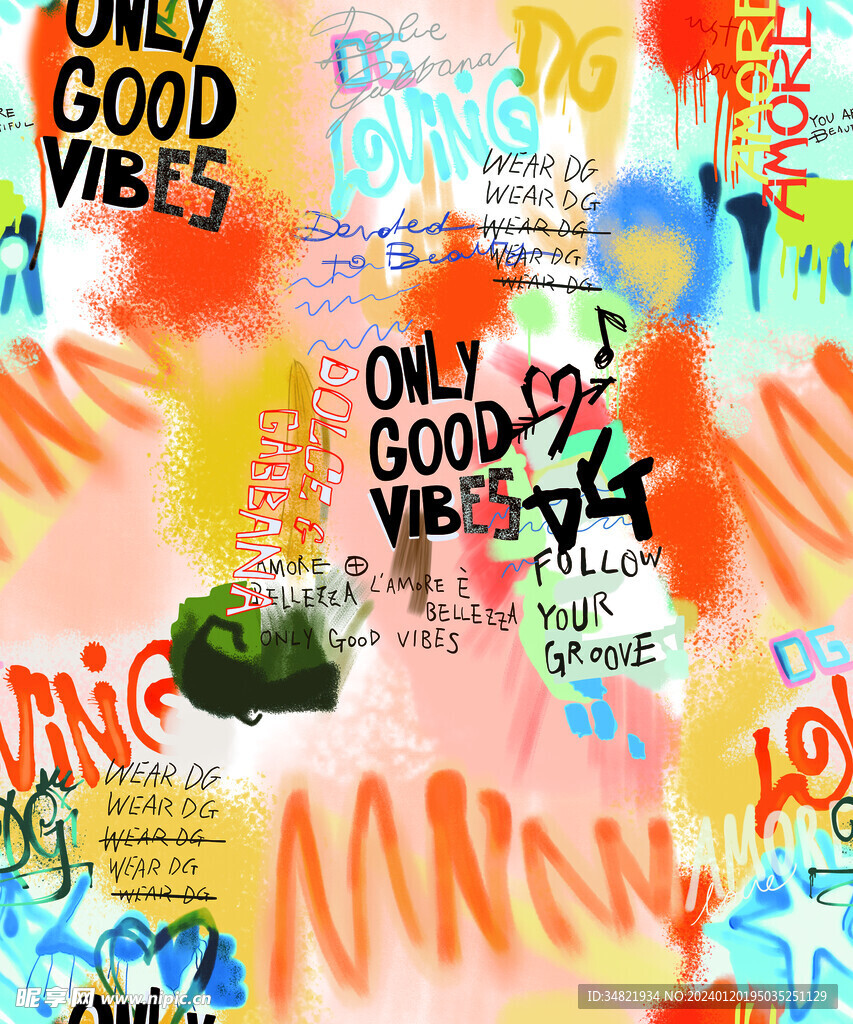 ONLY
GOOD
VIBES
Dolce
Gabbana
DG
DG
LOVING
just
love
AMORE
AMORE
YOU AR
BEAUT
RE
TIFUL
WEAR DG
WEAR DG
WEAR DG
WEAR DG
WEAR DG
Devoted
to Beauty
ONLY
GOOD
VIBES
DOLCE &
GABBANA
DG
FOLLOW
YOUR
GROOVE
AMORE
BELLEZZA
L'AMORE È
BELLEZZA
ONLY GOOD VIBES
VING
DG
LOV
WEAR DG
WEAR DG
WEAR DG
WEAR DG
WEAR DG
DG
AMOR
ONLY
昵享网 www.nipic.cn
ID:34821934 NO:20240120195035251129